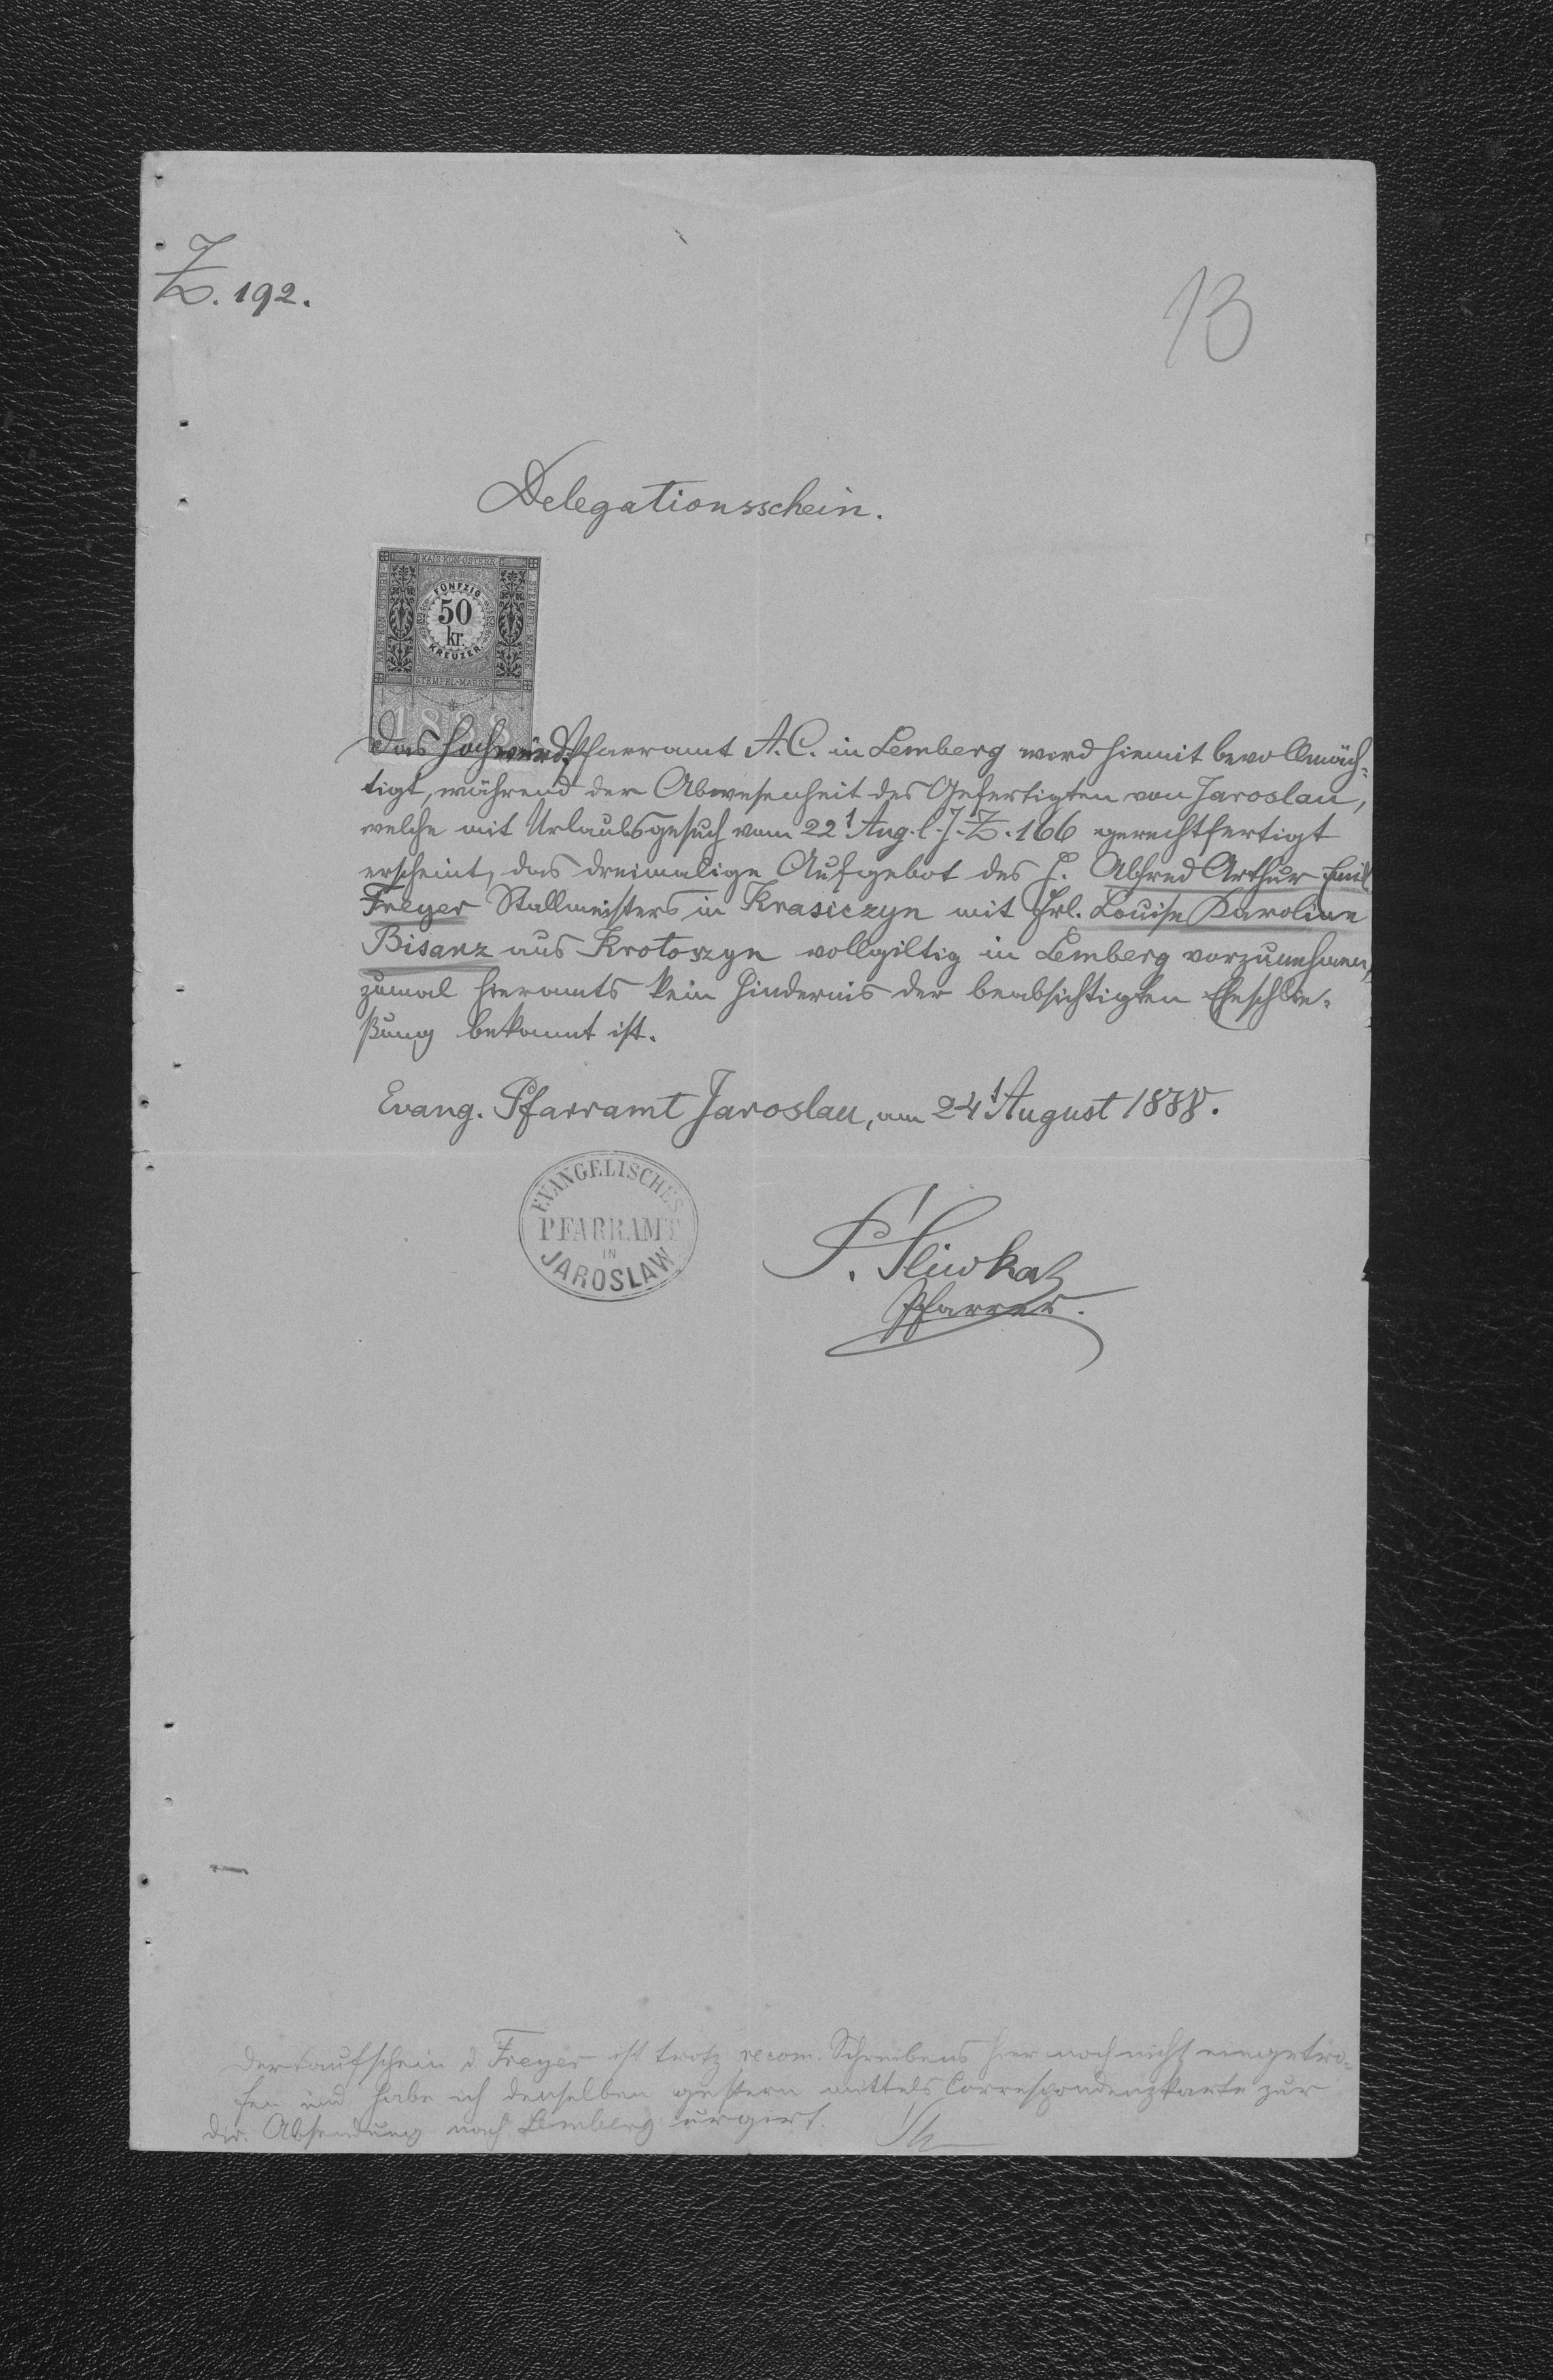 Z. 192.
13
Delegationsschein.
KAIS. KÖN. ÖSTERR.
STEMPEL-MARKE
FÜNFZIG
50
kr.
KREUZER
STEMPEL-MARKE
1888
Das hochwürd. Pfarramt A. C. in Lemberg wird hiemit bevollmäch-
tigt, während der Abwesenheit des Gefertigten von Jaroslau,
welche mit Urlaubsgesuch vom 22t Aug. l. J. Z. 166 gerechtfertigt
erscheint, das dreimalige Aufgebot des H. Alfred Arthur Emil
Freyer Stallmeisters in Krasiczyn mit Frl. Louise Karoline
Bisanz aus Krotoszyn vollgiltig in Lemberg vorzunehmen,
zumal hieramts kein Hindernis der beabsichtigten Eheschlie-
ßung bekannt ist.
Evang. Pfarramt Jaroslau, am 24t August 1888.
EVANGELISCHES
PFARRAMT
IN
JAROSLAW
Sliwka
Pfarrer.
Der Taufschein d. Freyer ist trotz recom. Schreibens hier noch nicht eingetrof-
fen und habe ich denselben gestern mittels Correspondenzkarte zur
dir. Absendung nach Lemberg urgirt.